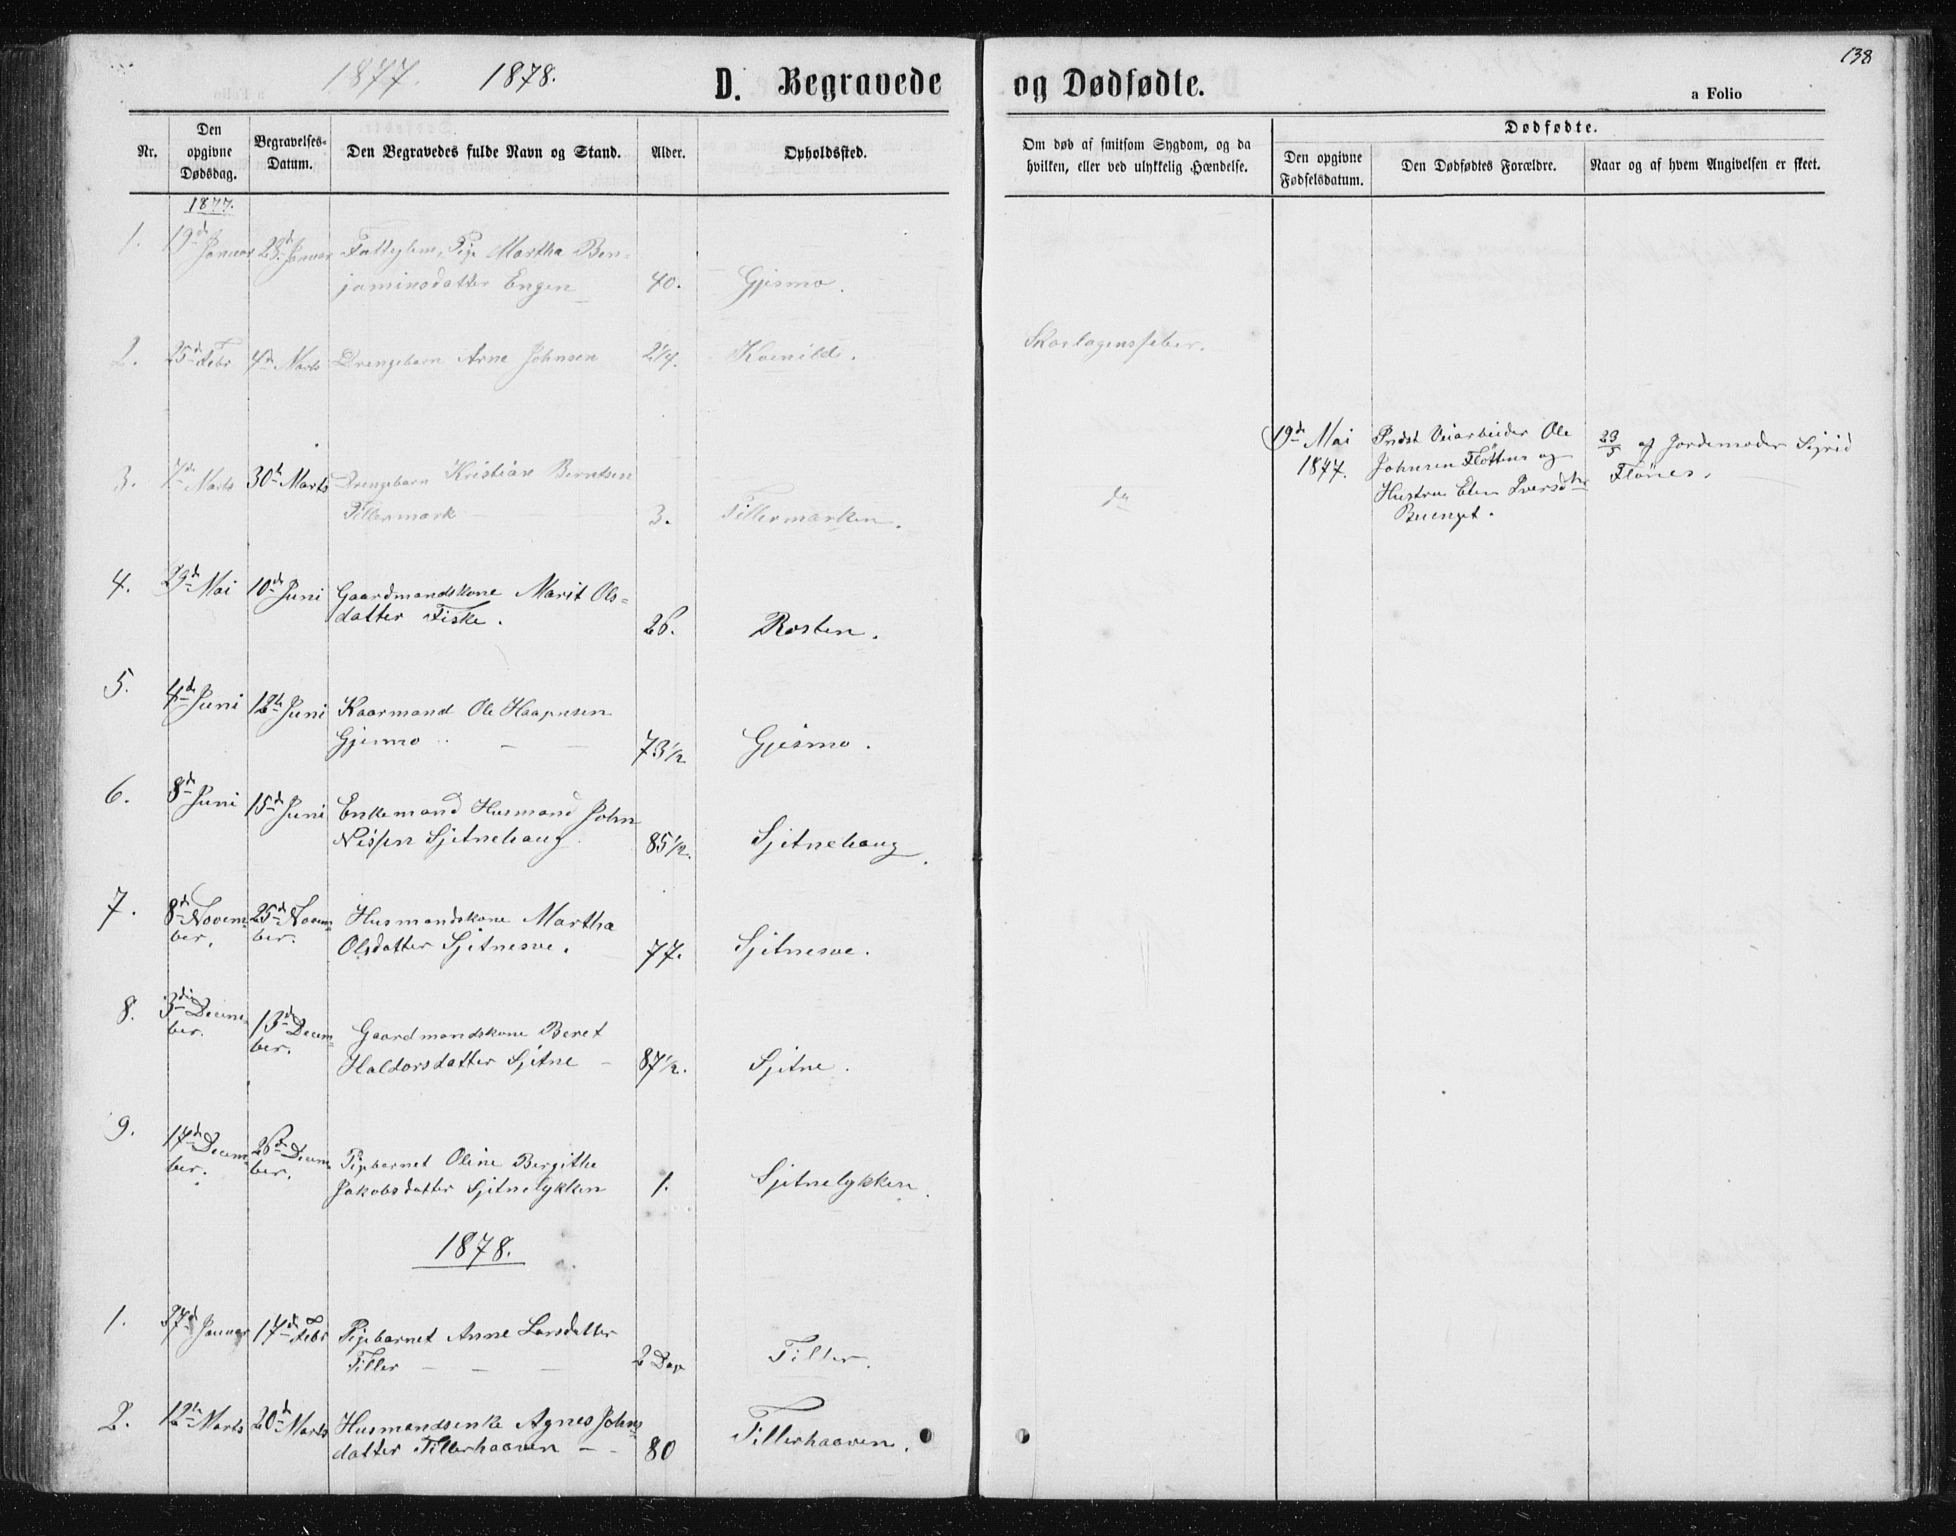 1877. 1878.
D. Begravede og Dødfødte.
138
a Folio
Nr.
Den opgivne Dødsdag.
Begravelses-Datum.
Den Begravedes fulde Navn og Stand.
Alder.
Opholdssted.
Om død af smitsom Sygdom, og da hvilken, eller ved ulykkelig Hændelse.
Dødfødte.
Den opgivne Fødselsdatum.
Den Dødfødtes Forældre.
Naar og af hvem Angivelsen er skeet.
1877.
1. 19de Januar 28de Januar Fattiglem, Pige Martha Ben-
jaminsdatter Engen 40. Gjismo.
2. 25de Febr 4de Marts Drengebarn Arne Johnsen 2 1/4. Kvenild. Skarlagensfeber.
3. 7de Marts 30te Marts Drengebarn Kristian Berntsen
Tillermark 3. Tillermarken. do
19de Mai Indst Veiarbeider Ole 23/5 af Jordemoder Sigrid
1877. Johnsen Fløttum og Flønes.
Hustru Elen Iversdtr
4. 29de Mai 10de Juni Gaardmandskone Marit Ols-
datter Fiske. 26. Rosten.
5. 4de Juni 12te Juni Kaarmand Ole Haagensen
Gjismo 73 1/2 Gjismo.
6. 8de Juni 15de Juni Enkemand Husmand John
Nissen Sjetnehaug 85 1/2. Sjetnehaug.
7. 8de Novem- 25de Novem- Husmandskone Martha
ber. ber. Olsdatter Sjetnesve. 77. Sjetnesve.
8. 3die Decem- 13de Decem- Gaardmandskone Beret
ber. ber. Haldorsdatter Sjetne 87 1/2. Sjetne.
9. 17de Decem- 26de Decem- Pigebarnet Oline Bergithe
ber. ber. Jakobsdatter Sjetnelykken 1. Sjetnelykken.
1878.
1. 27de Januar 17de Febr Pigebarnet Anne Larsdatter
Tiller 2 Dage Tiller.
2. 12te Marts 20de Marts Husmandsenke Agnes Johns-
datter Tillerhaaven 80 Tillerhaaven.